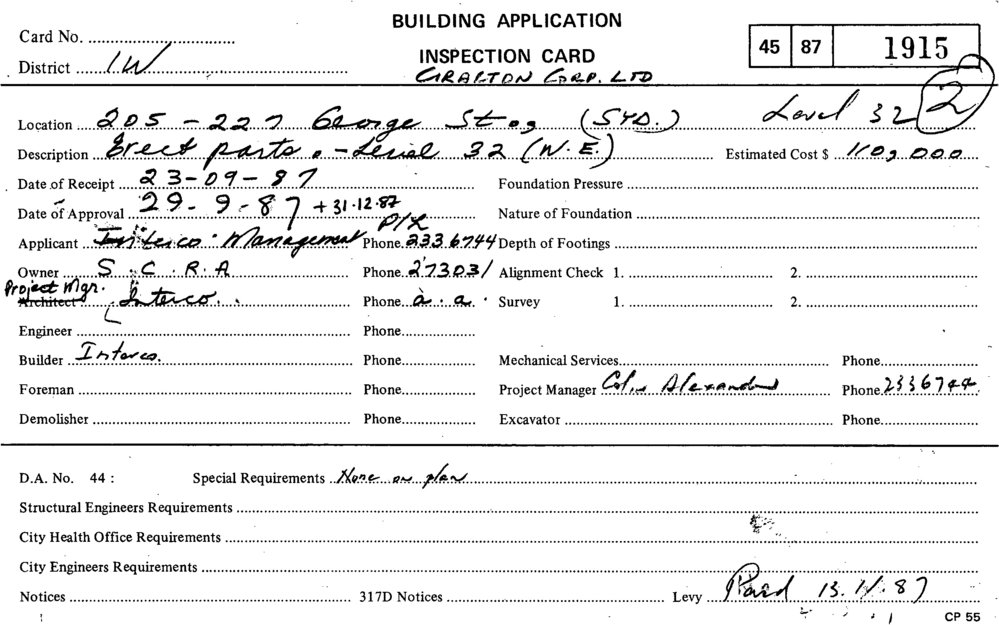 BUILDING APPLICATION
Card No.
INSPECTION CARD
45 87 1915
District 1W
GRALTON CORP. LTD
2
Location 205 - 227 George St., (SYD.) Level 32
Description Erect parts. - Level 32 (N.E.) Estimated Cost $ 110,000
Date of Receipt 23-09-87 Foundation Pressure
Date of Approval 29-9-87 + 31.12.87 Nature of Foundation
Applicant Interco Management P/L Phone 2336744 Depth of Footings
Owner S.C.R.A Phone 273031 Alignment Check 1. 2.
Project Mgr.
Architect Interco. Phone a.a. Survey 1. 2.
Engineer Phone
Builder Interco. Phone Mechanical Services Phone
Foreman Phone Project Manager Colin Phone 2336744
Demolisher Phone Excavator Phone
D.A. No. 44 : Special Requirements None on plan
Structural Engineers Requirements
City Health Office Requirements
City Engineers Requirements
Notices 317D Notices Levy Paid 13.11.87
CP 55